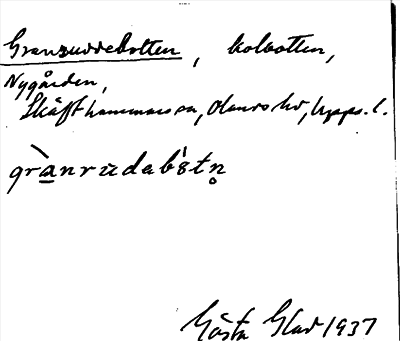 Granruddebotten, kolbotten,
Nygården,
Skäfthammars sn, Olands hd, Upps. l.
grànrudabótn̥
Gösta Glad 1937